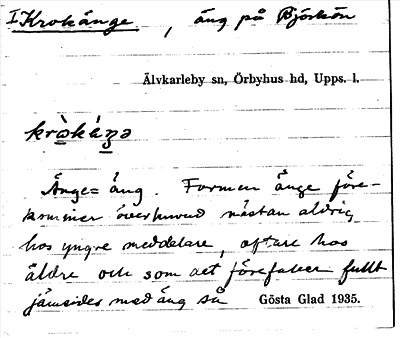 I Krokänge, äng på Björkön
Älvkarleby sn, Örbyhus hd, Upps. l.
kròkáŋə
Änge = äng. Formen änge före-
kommer överhuvud nästan aldrig
hos yngre meddelare, oftare hos
äldre och som det förefaller fullt
jämsides med äng så
Gösta Glad 1935.